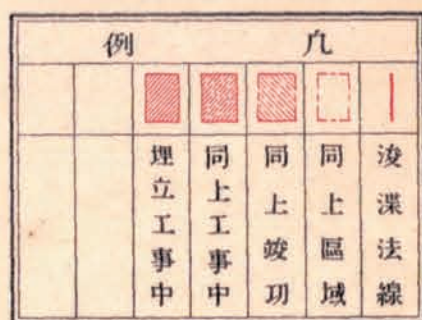 凢例
浚渫法線
同上區域
同上竣功
同上工事中
埋立工事中